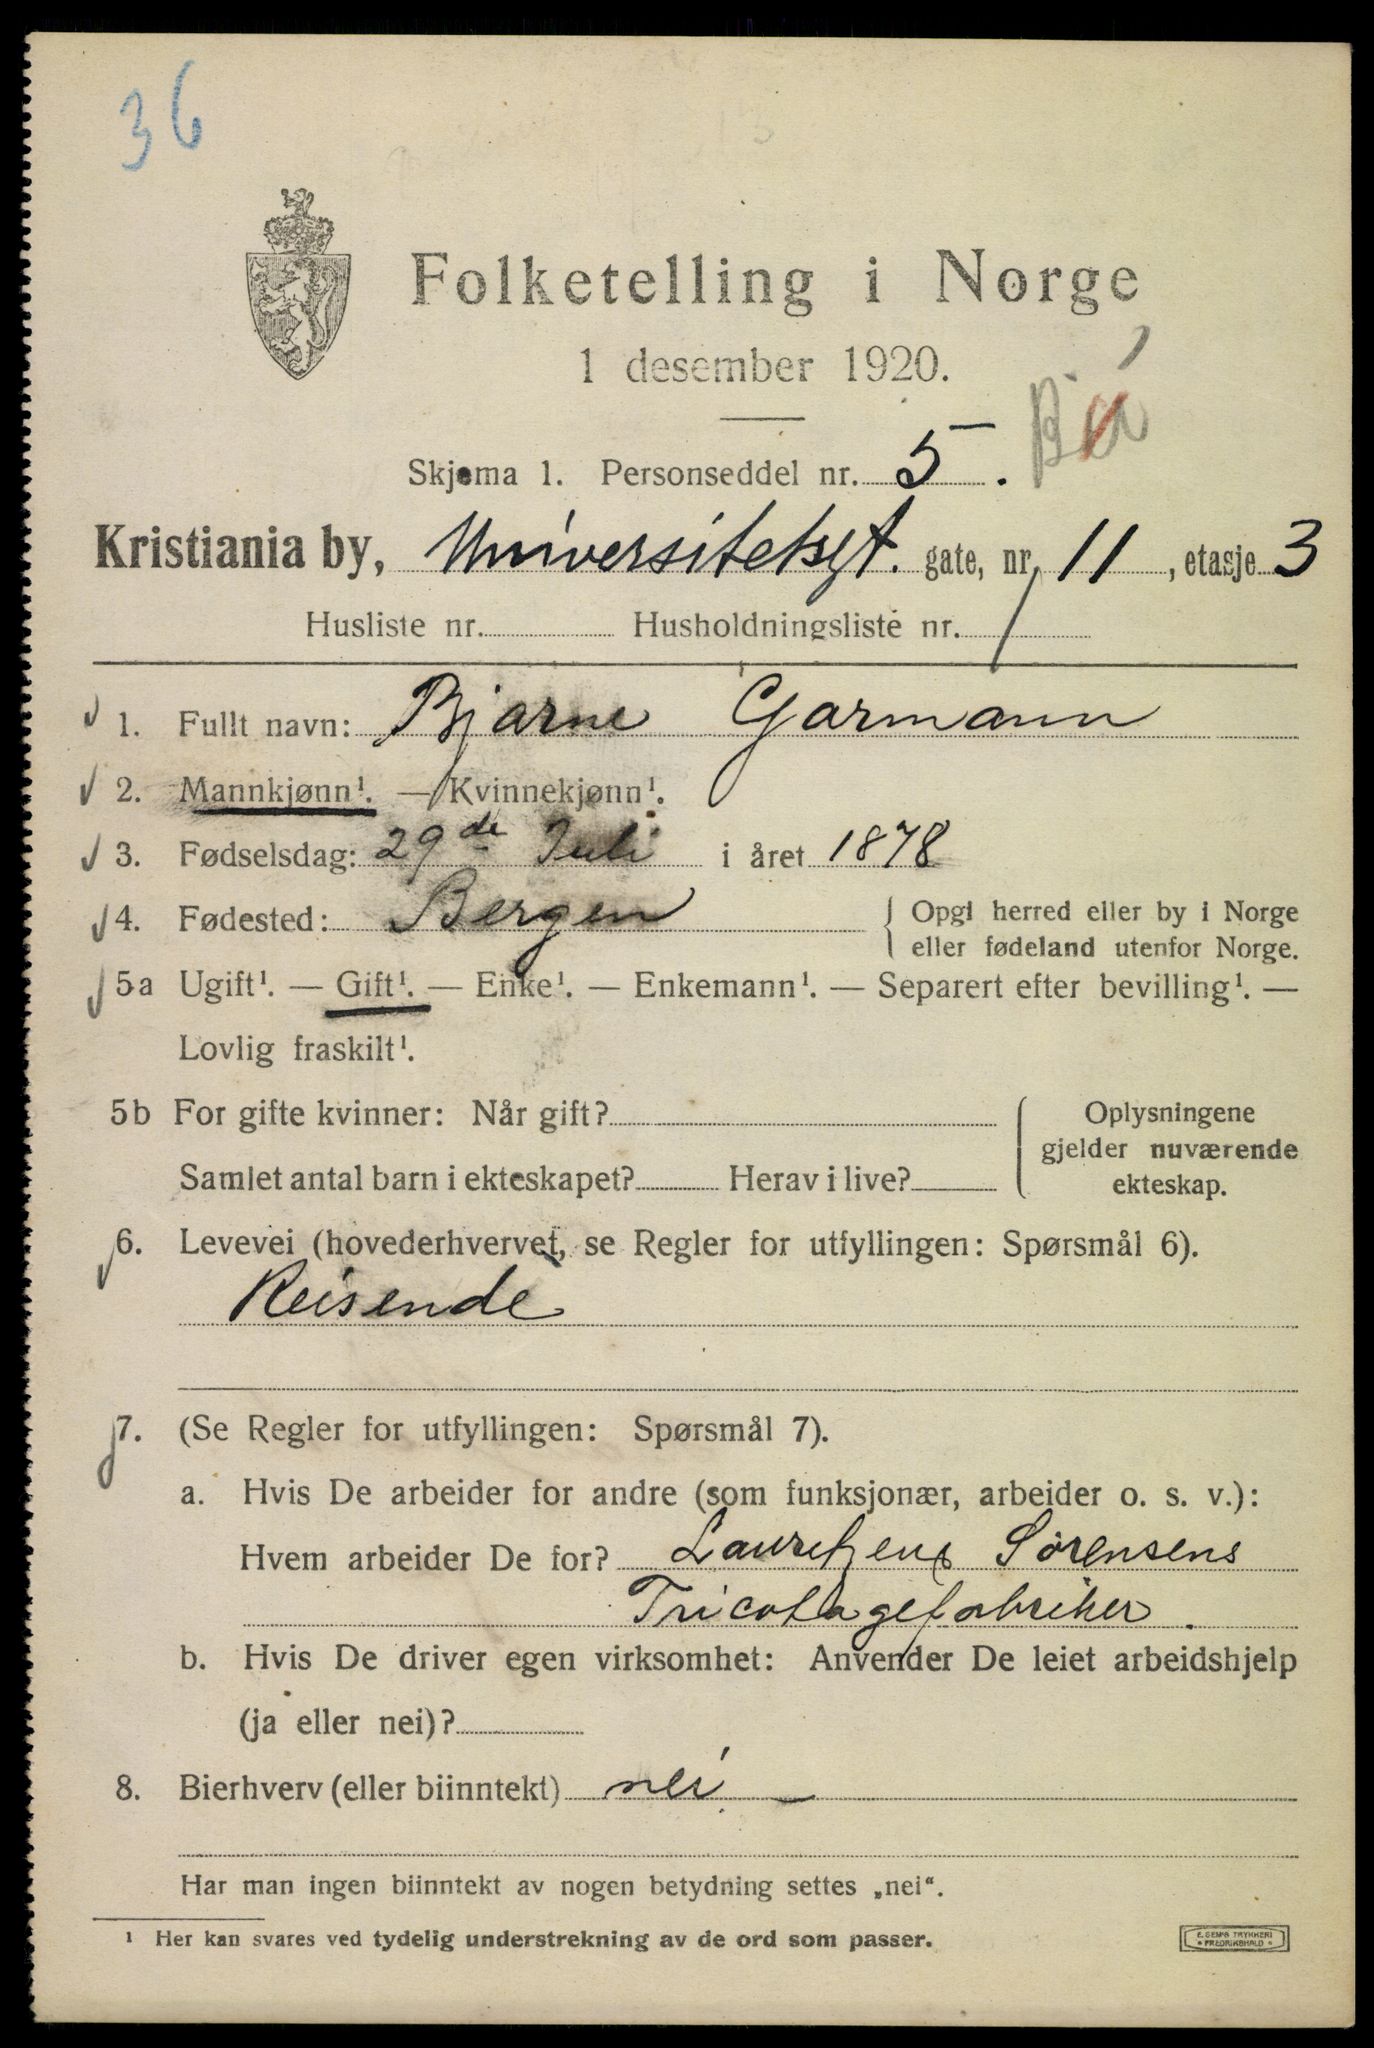 36
Folketelling i Norge
1 desember 1920.
Skjema 1. Personseddel nr. 5.
Kristiania by, Universitetsgt. gate, nr. 11, etasje 3
Husliste nr. Husholdningsliste nr. 1
1. Fullt navn: Bjarne Garmann
2. Mannkjønn¹. — Kvinnekjønn¹.
3. Fødselsdag: 29de Juli i året 1878
4. Fødested: Bergen { Opgi herred eller by i Norge
eller fødeland utenfor Norge.
5a Ugift¹. — Gift¹. — Enke¹. — Enkemann¹. — Separert efter bevilling¹. —
Lovlig fraskilt¹.
5b For gifte kvinner: Når gift? Oplysningene
gjelder nuværende
Samlet antal barn i ekteskapet? Herav i live? ekteskap.
6. Levevei (hovederhvervet, se Regler for utfyllingen: Spørsmål 6).
Reisende
7. (Se Regler for utfyllingen: Spørsmål 7).
a. Hvis De arbeider for andre (som funksjonær, arbeider o. s. v.):
Hvem arbeider De for? Lauritzens Sørensens
Tricotagefabriker.
b. Hvis De driver egen virksomhet: Anvender De leiet arbeidshjelp
(ja eller nei)?
8. Bierhverv (eller biinntekt) nei —
Har man ingen biinntekt av nogen betydning settes „nei“.
¹ Her kan svares ved tydelig understrekning av de ord som passer.
E. SEM'S TRYKKERI
• FREDRIKSHALD •